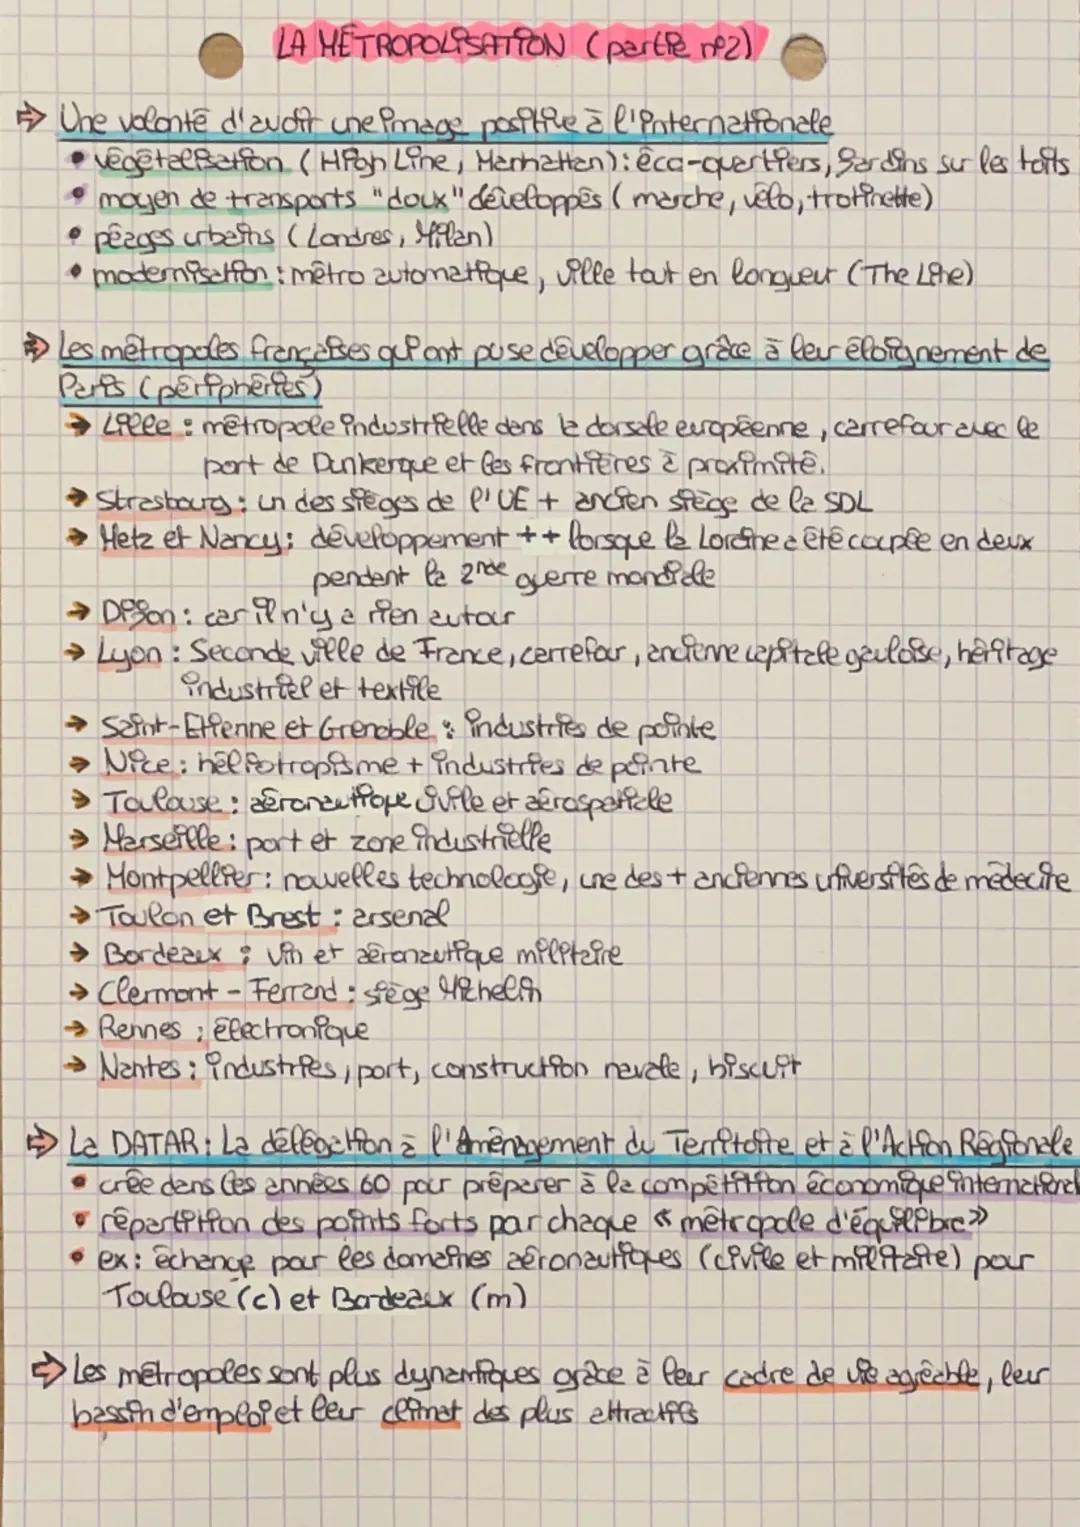 LA MÉTROPOLISATION (partie n°2)
⇒ Une volonté d'avoir une image positive à l'internationale
• végétalisation (High Line, Manhattan): éco-quartiers, jardins sur les toits
• moyen de transports "doux" développés (marche, vélo, trotinette)
• péages urbains (Londres, Milan)
• modernisation : métro automatique, ville tout en longueur (The Line)
⇒ Les métropoles françaises qui ont pu se développer grâce à leur éloignement de
Paris (périphéries)
→ Lille : métropole industrielle dans la dorsale européenne, carrefour avec le
port de Dunkerque et les frontières à proximité.
→ Strasbourg : un des sièges de l'UE + ancien siège de la SDL
→ Metz et Nancy : développement ++ lorsque la Lorraine a été coupée en deux
pendant la 2nde guerre mondiale
→ Dijon : car il n'y a rien autour
→ Lyon : Seconde ville de France, carrefour, ancienne capitale gauloise, héritage
industriel et textile
→ Saint-Etienne et Grenoble : industries de pointe
→ Nice : héliotropisme + industries de pointe
→ Toulouse : aéronautique civile et aérospatiale
→ Marseille : port et zone industrielle
→ Montpellier : nouvelles technologie, une des + anciennes universités de médecine
→ Toulon et Brest : arsenal
→ Bordeaux : vin et aéronautique militaire
→ Clermont - Ferrand : siège Michelin
→ Rennes : électronique
→ Nantes : industries, port, construction navale, biscuit
⇒ La DATAR : La délégation à l'Aménagement du Territoire et à l'Action Régionale
• crée dans les années 60 pour préparer à la compétition économique international
• répartition des points forts par chaque « métropole d'équilibre »
• ex : échange pour les domaines aéronautiques (civile et militaire) pour
Toulouse (c) et Bordeaux (m)
⇒ Les métropoles sont plus dynamiques grâce à leur cadre de vie agréable, leur
bassin d'emploi et leur climat des plus attractifs